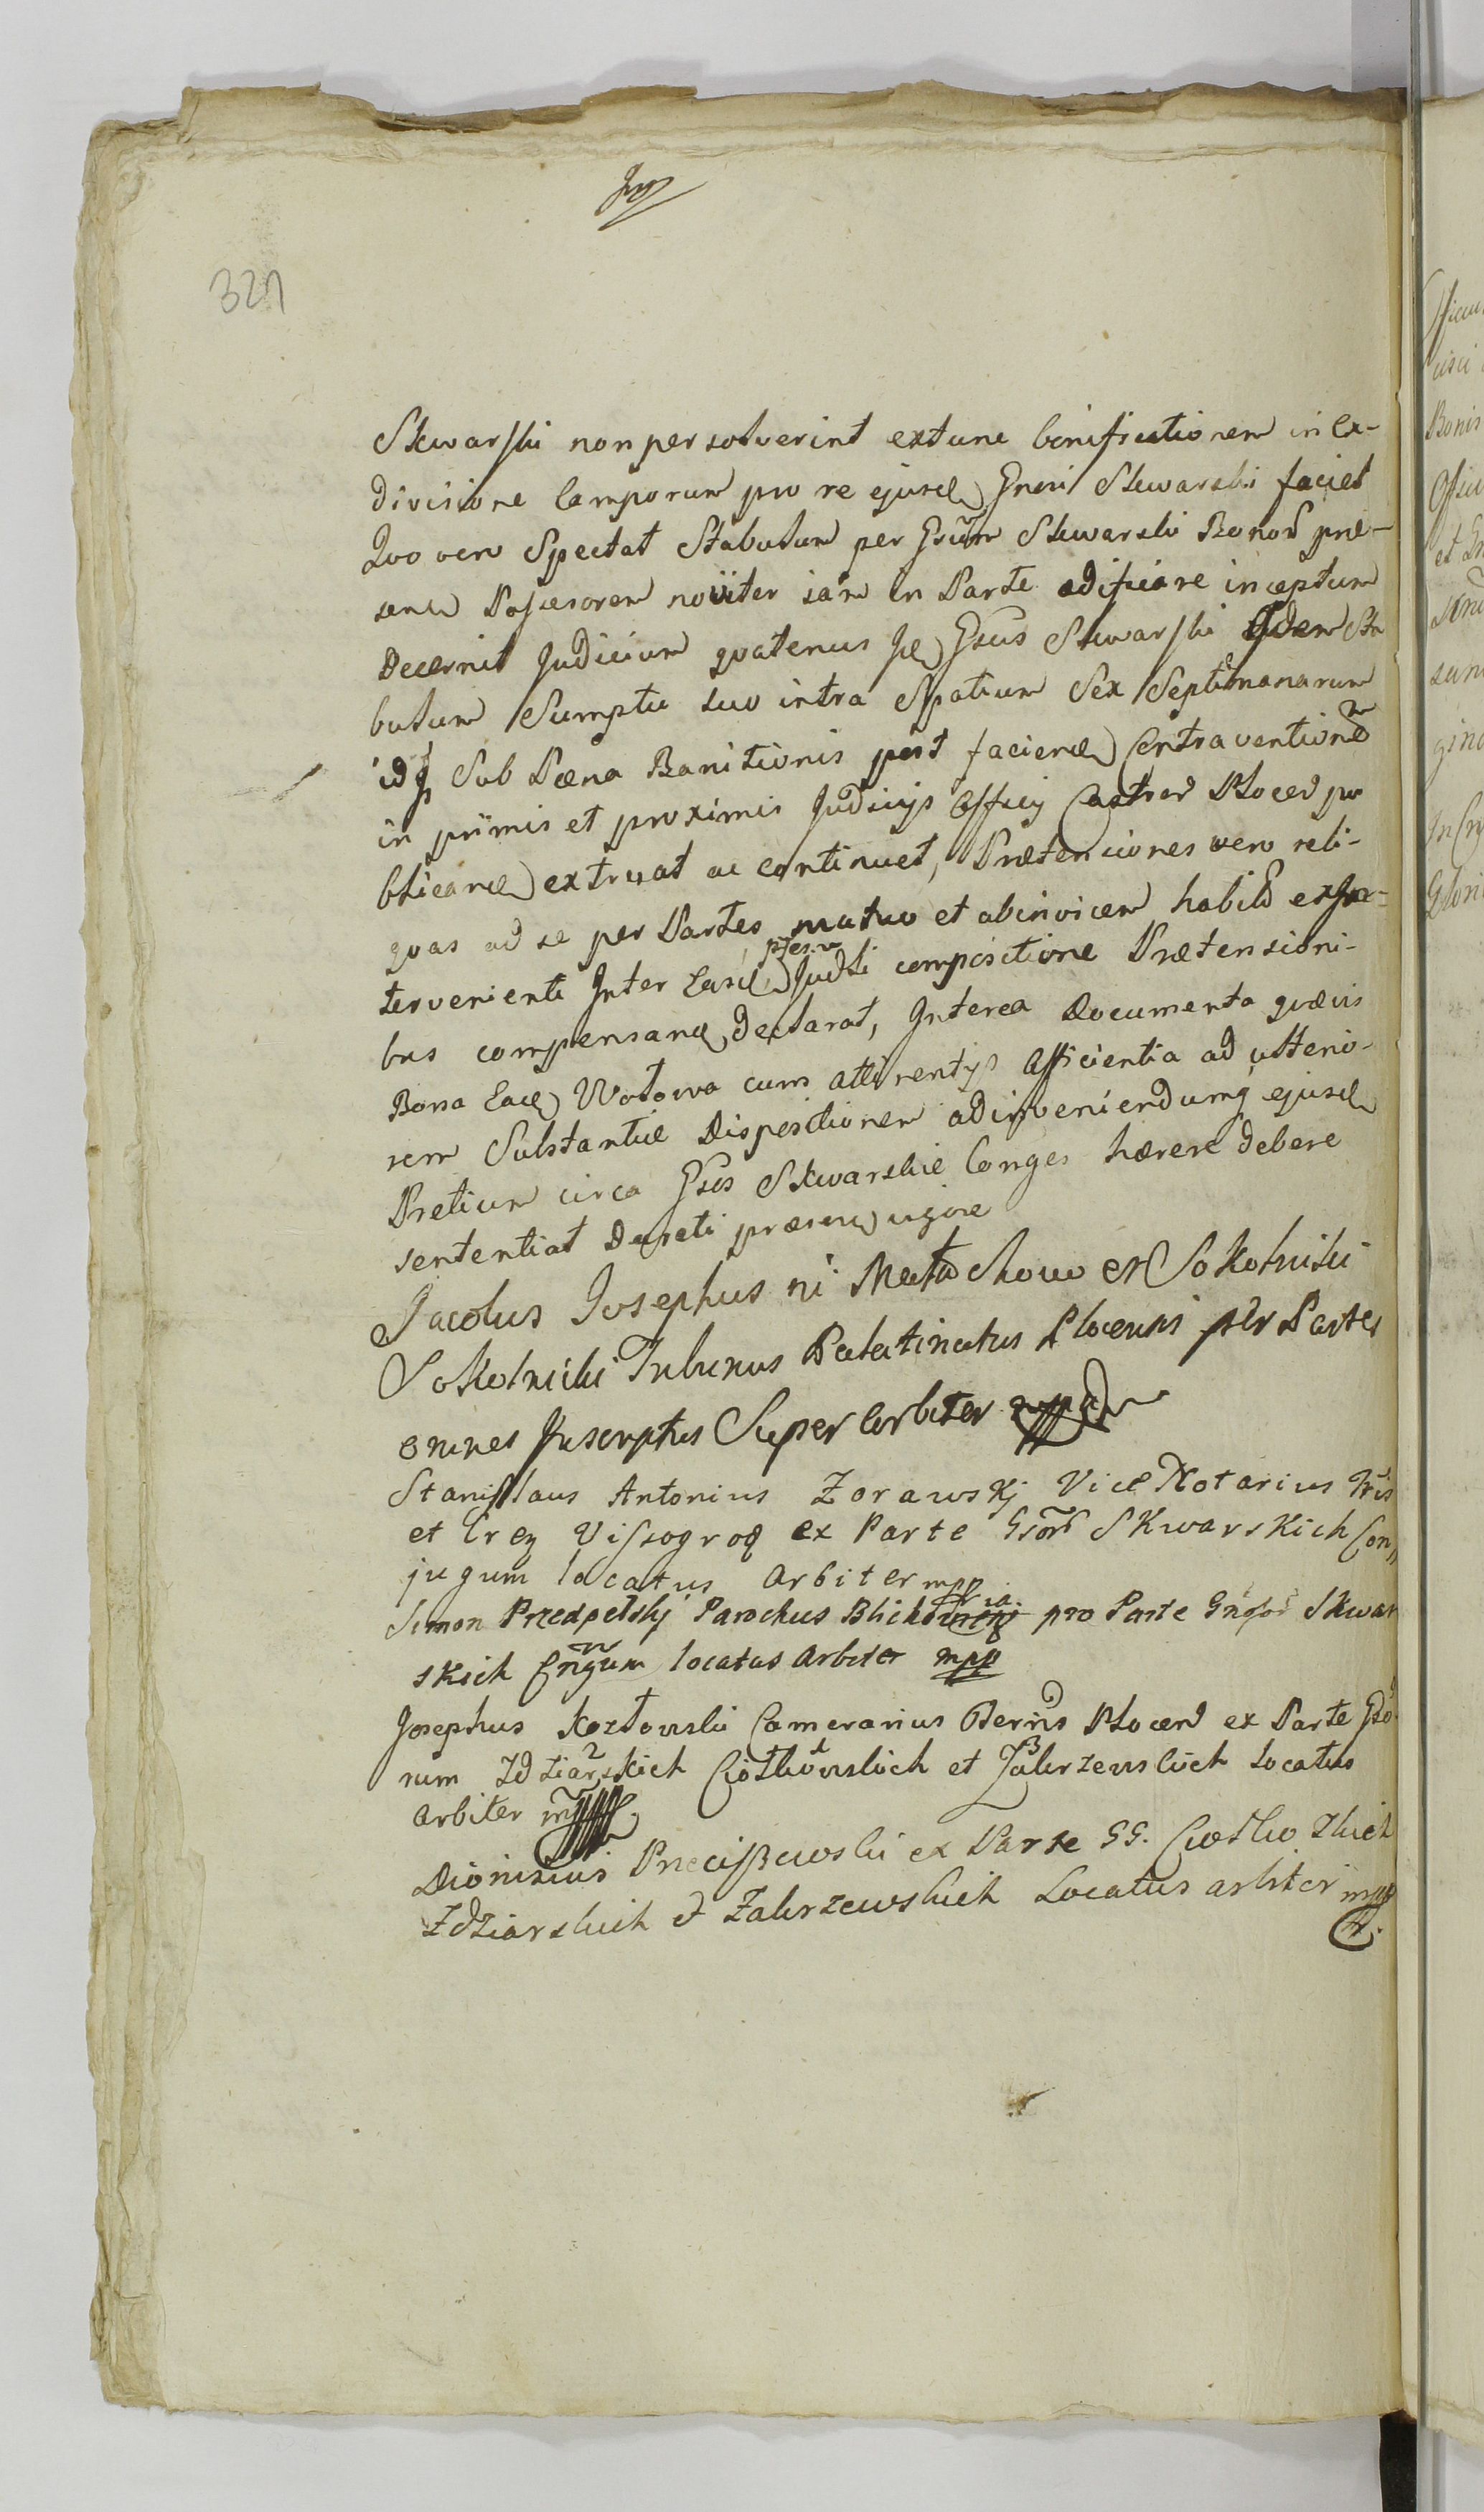 327
Skwarski non persolverint extunc bonificationem in Ex-
divisione Camporum pro re ejusd Gnosi Skwarski faciet
Quo vero Spectat Stabulum per Gsum Skwarski Bonor præ-
sens Possesorem noviter iam in Parte ædificare inceptum
Decernit Judicium quatenus Gsus Skwarski Sta
bulum Sumptu suo intra Spatium Sex Septimanarum
idq Sub Pæna Banitionis post faciend Contraventionem
in primis et proximis Judicijs Officij Castren Plocen pu
blicand extruat ac continuet, Prætensiones vero reli-
quas ad se per Partes mutuo et abinvicem habit ex
tervenienti Inter Easd Judli compositione Prætensioni-
bus compensand declarat, Interea Documenta quævis
Bona Ead Wołowa cum attinentijs afficientia ad ulterio-
rem Substantiæ Dispositionem adinveniendumq ejusd
Pretium circa Gsos Skwarskie Conges hærere debere
sententiat Decreti præsens vigore
Jacobus Josephus in Sokolniki
Sokolnicki Tribunus Palatinatus Plocensis per Partes
omnes Juscriptus Super Arbiter
Stanislaus Antonius Zorawskj Vice Notarius Tris
et Crey Vissogrod ex Parte Gsor Skwarskich Con
jugum locatus Arbiter mpp
Simon Przedpełskj Parochus pro Parte Gnosor Skwar
skich Cngum locatus Arbiter mpp
Josephus Kozłowski Camerarius Plocen ex Parte Gso
rum Zdziarskich Ciołkowskich et Zakrzewskich Locatus
Arbiter
Dionisius Preciszewski ex Parte GG. Ciołko
Zdziarskich et Zakrzewskich Locatus arbiter mpp